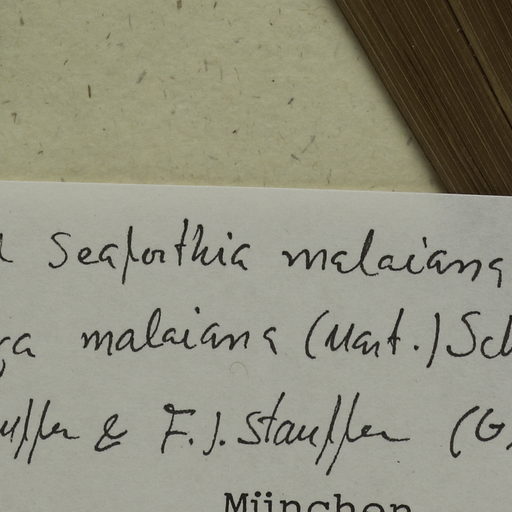 Seaforthia malaiana
malaiana (Mart.) Sch
& F. J. Stauffer (G
München